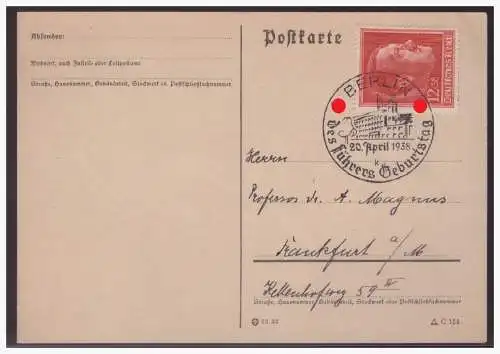 Absender:
Wohnort, auch Zustell- oder Leitpostamt
Straße, Hausnummer, Gebäudeteil, Stockwerk od. Postschließfachnummer
Postkarte
DEUTSCHES REICH
12+38
BERLIN
20. April 1938
des Führers Geburtstag
Herrn
Professor Dr. A. Magnus
Frankfurt a/M
Kettenhofweg 59 IV
Straße, Hausnummer, Gebäudeteil, Stockwerk oder Postschließfachnummer
C 154